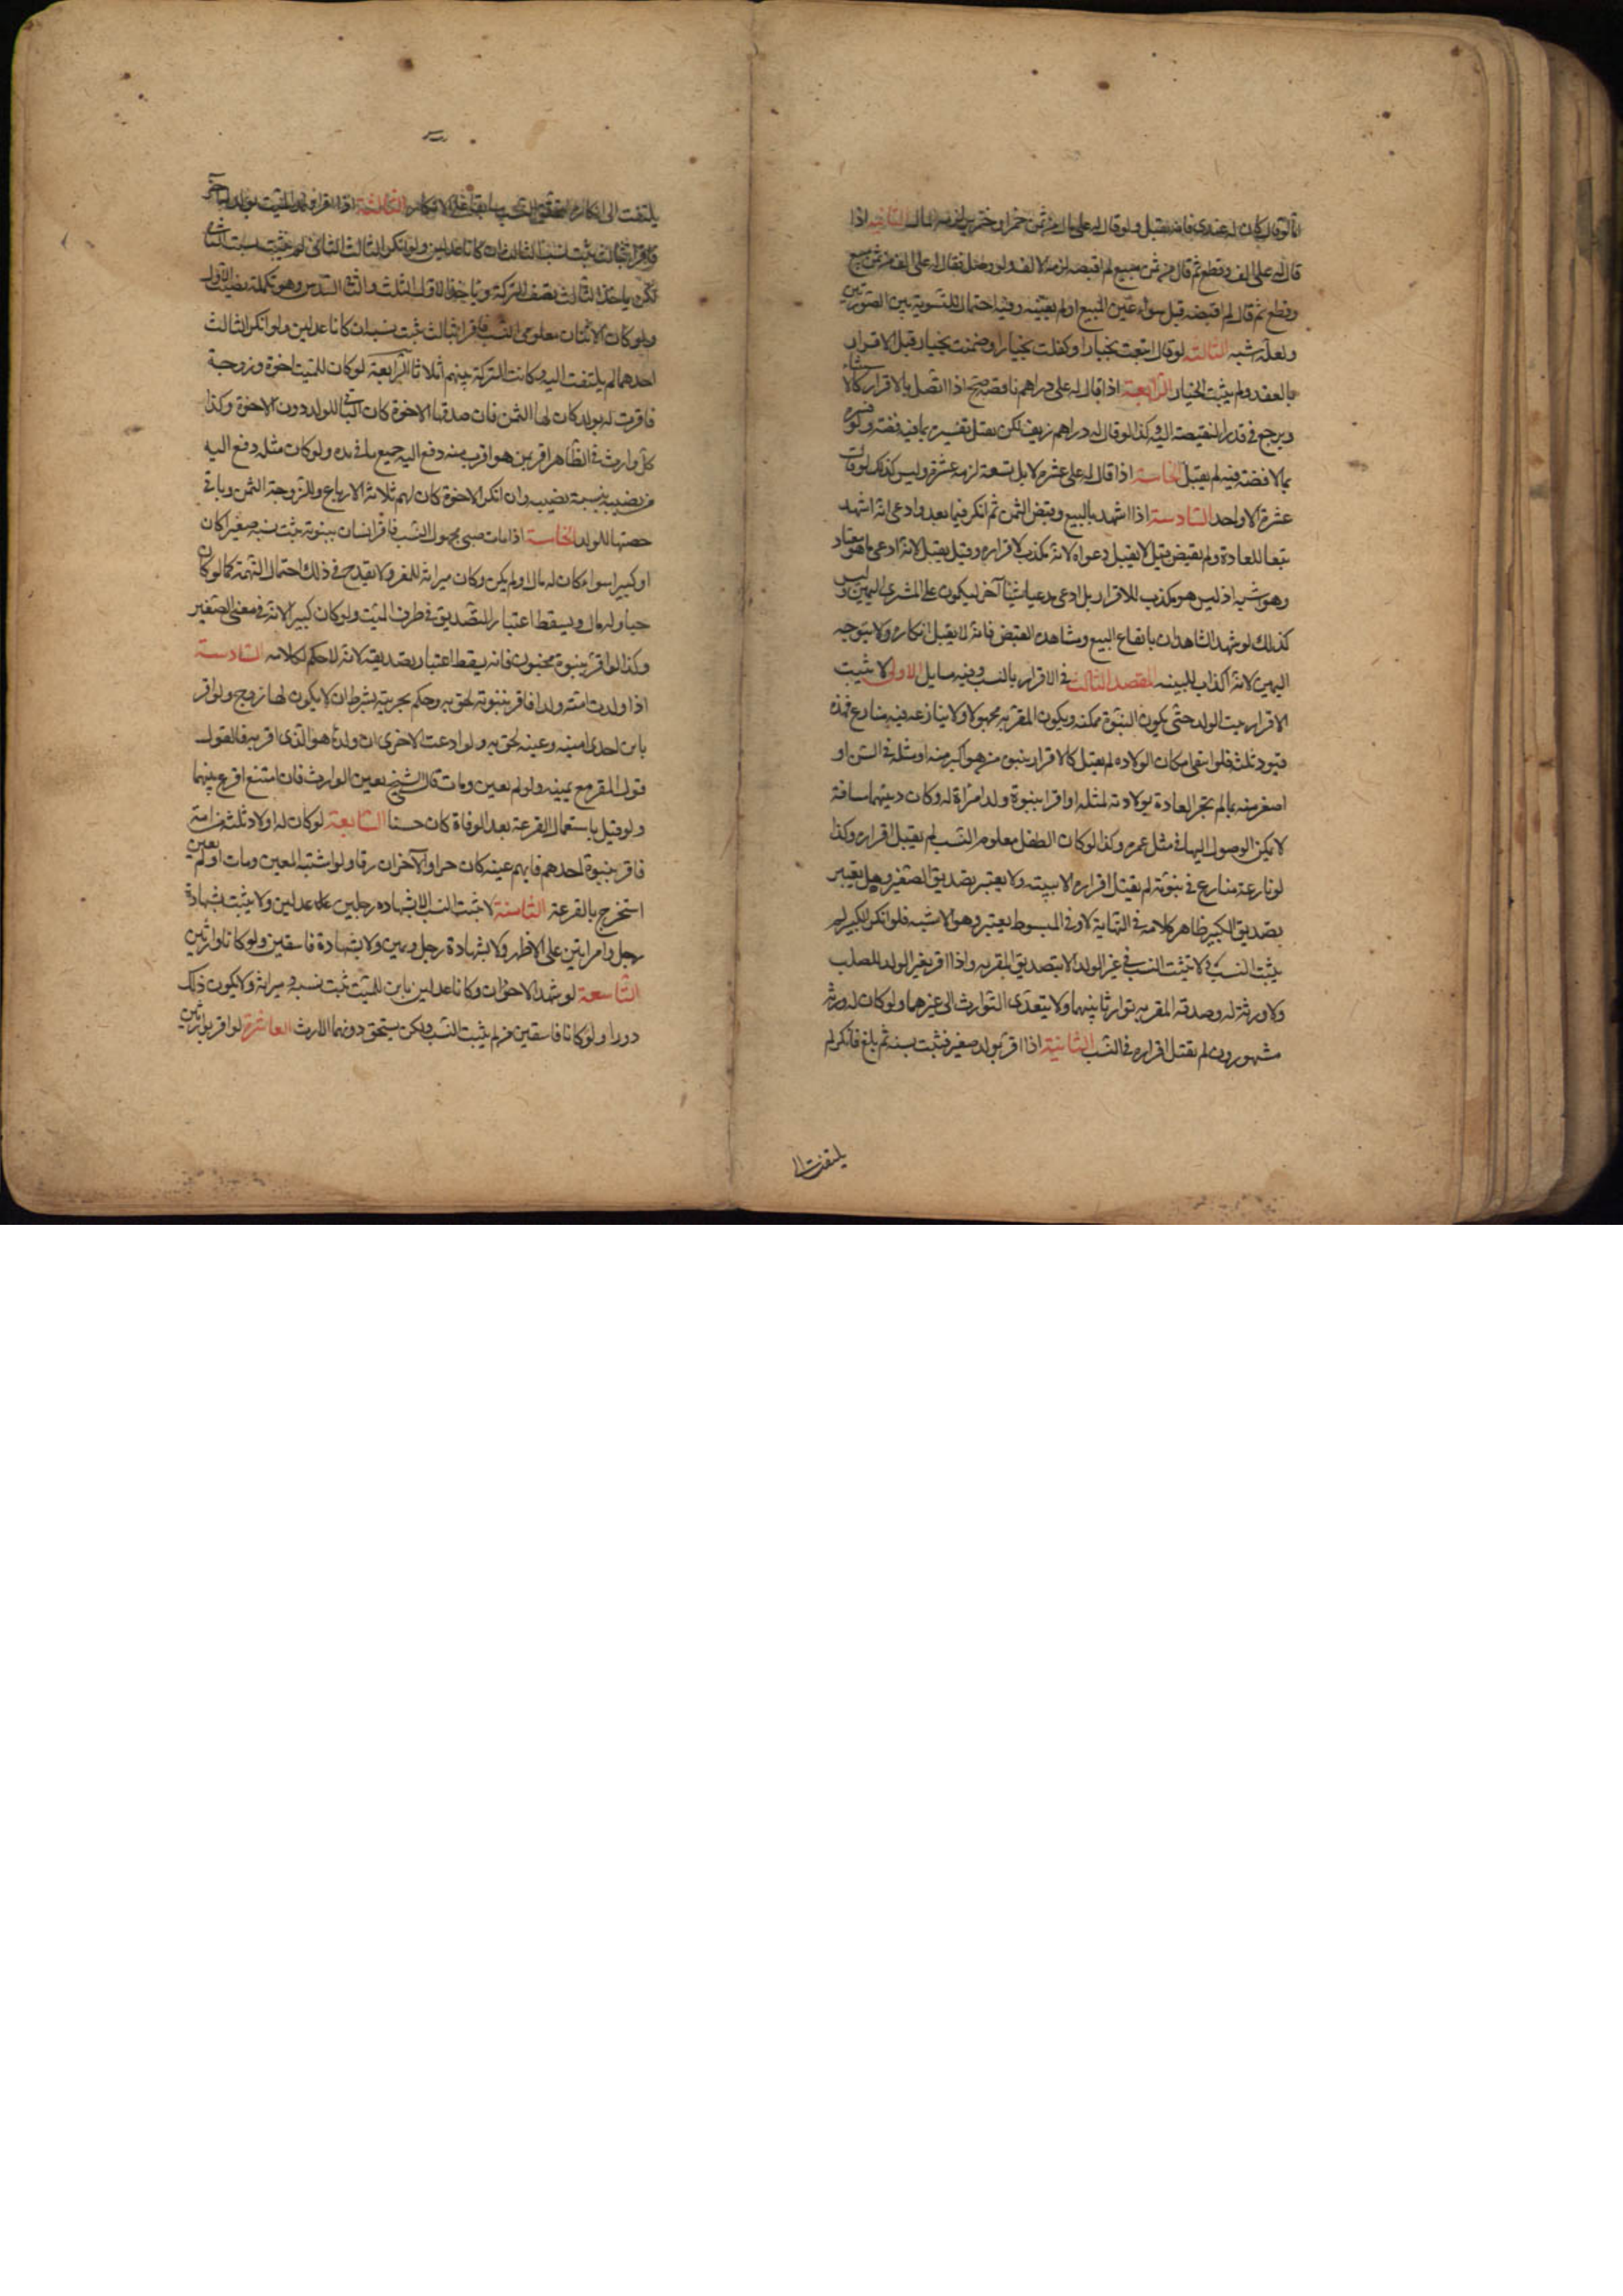 اما لو قال كان له عندى فانه يقبل ولو قال له على مال من ثمن خمر او خنزير لزمه المال الثانيه اذا
قال له على الف وقطع ثم قال من ثمن مبيع لم اقبضه لزمه الالف ولو وصل فقال له على الف من ثمن مبيع
وقطع ثم قال لم اقبضه قبل سواء عين المبيع او لم يعينه وفيه احتمال للتسوية بين الصورتين
ولعله اشبه الثالثه لو قال ابتعت بخيار او كفلت بخيار او ضمنت بخيار قبل الاقرار
بالعقد ولم يثبت الخيار الرابعة اذا قال له على دراهم ناقصه صح اذا اتصل بالاقرار كالاستثناء
ويرجع فى قدر النقيصة اليه وكذا لو قال له دراهم زيف لكن يقبل تفسيره بما فيه فضة ولو فسره
بما لا فضة فيه لم يقبل الخامسة اذا قال له على عشره لا بل تسعة لزمه عشرة وليس كذلك لو قال
عشرة الا واحد السادسة اذا اشهد بالبيع وقبض الثمن ثم انكر فيما بعد وادعى انه اشهد
تبعا للعادة ولم يقبض قيل لا يقبل دعواه لانه مكذب لاقراره وقيل يقبل لانه ادعى ما هو معتاد
وهو اشبه اذ ليس هو مكذب للاقرار بل ادعى مدعيا شيئا آخر ليكون على المشترى اليمين وليس
كذلك لو شهد الشاهدان بايقاع البيع ومشاهدة القبض فانه لا يقبل انكاره ولا يتوجه
اليمين لانه اكذاب للبينه المقصد الثالث فى الاقرار بالنسب وفيه مسايل الاولى لا يثبت
الاقرار بنسب الولد حتى يكون البنوة ممكنه ويكون المقر به مجهولا ولا ينازعه فيه منازع فهذه
قيود ثلثة فلو انتفى امكان الولاده لم يقبل كالاقرار ببنوة من هو اكبر منه او مثله فى السن او
اصغر منه بما لم تجر العادة بولادته لمثله او اقر ببنوة ولد امرأة له وكان بينهما مسافة
لا يمكن الوصول اليها فى مثل عمره وكذا لو كان الطفل معلوم النسب لم يقبل اقراره وكذا
لو نازعه منازع فى بنوته لم يقبل اقراره الا ببينه ولا يعتبر تصديق الصغير وهل يعتبر
تصديق الكبير ظاهر كلامه فى النهاية لا وفى المبسوط يعتبر وهو الاشبه فلو انكر الكبير لم
يثبت النسب ولا يثبت النسب فى غير الولد الا بتصديق المقر به واذا اقر بغير الولد للصلب
ولا ورثة له وصدقه المقر به توارثا بينهما ولا يتعدى التوارث الى غيرهما ولو كان له ورثة
مشهورون لم يقبل اقراره فى النسب الثانية اذا اقر بولد صغير فثبت نسبه ثم بلغ فانكر لم
يلتفت الى
يلتفت الى انكاره لتحقق النسب سابقا على الانكار الثالثة اذا اقر ابن الميت بولد له آخر
فاقرا بثالث ثبت نسب الثالث ان كانا عدلين ولو انكر الثالث الثانى لم يثبت نسب الثانى
لكن ياخذ الثالث نصف التركة وياخذ الاول الثلث والثانى السدس وهو تكملة نصيب الاول
ولو كان الاثنان معلومى النسب فاقرا بثالث ثبت نسبه ان كانا عدلين ولو انكر الثالث
احدهما لم يلتفت اليه وكانت التركة بينهم اثلاثا الرابعة لو كان للميت اخوة وزوجة
فاقرت له بولد كان لها الثمن فان صدقها الاخوة كان الباقى للولد دون الاخوة وكذا
كل وارث فى الظاهر اقر بمن هو اقرب منه دفع اليه جميع ما فى يده ولو كان مثله دفع اليه
من نصيبه بنسبة نصيبه وان انكر الاخوة كان لهم ثلاثة الارباع وللزوجة الثمن وباقى
حصتها للولد الخامسة اذا مات صبى مجهول النسب فاقر انسان ببنوته ثبت نسبه صغيرا كان
او كبيرا سواء كان له مال او لم يكن وكان ميراثه للمقر ولا يقدح فى ذلك احتمال التهمة كما لو كان
حيا وله مال ويسقط اعتبار التصديق فى طرف الميت ولو كان كبيرا لانه فى معنى الصغير
وكذا لو اقر ببنوة مجنون فانه يسقط اعتبار تصديقه لانه لا حكم لكلامه السادسة
اذا ولدت امته ولدا فاقر ببنوته لحق به وحكم بحريته بشرط ان لا يكون لها زوج ولو اقر
بابن احدى امتيه وعينه لحق به ولو ادعت الاخرى ان ولدها هو الذى اقر به فالقول
قول المقر مع يمينه ولو لم يعين ومات قال الشيخ يعين الوارث فان امتنع اقرع بينهما
ولو قيل باستعمال القرعة بعد الوفاة كان حسنا السابعة لو كان له اولاد ثلثة من امة
فاقر ببنوة احدهم فايهم عينه كان حرا والآخران رقا ولو اشتبه المعين ومات او لم يعين
استخرج بالقرعة الثامنة لا يثبت النسب الا بشهاده رجلين عدلين ولا يثبت بشهادة
رجل وامراتين على الاظهر ولا بشهادة رجل ويمين ولا بشهادة فاسقين ولو كانا وارثين
التاسعة لو شهد الاخوان وكانا عدلين بابن للميت ثبت نسبه وميراثه ولا يكون ذلك
دورا ولو كانا فاسقين لم يثبت النسب ولكن يستحق دونهما الارث العاشرة لو اقر بوارثين